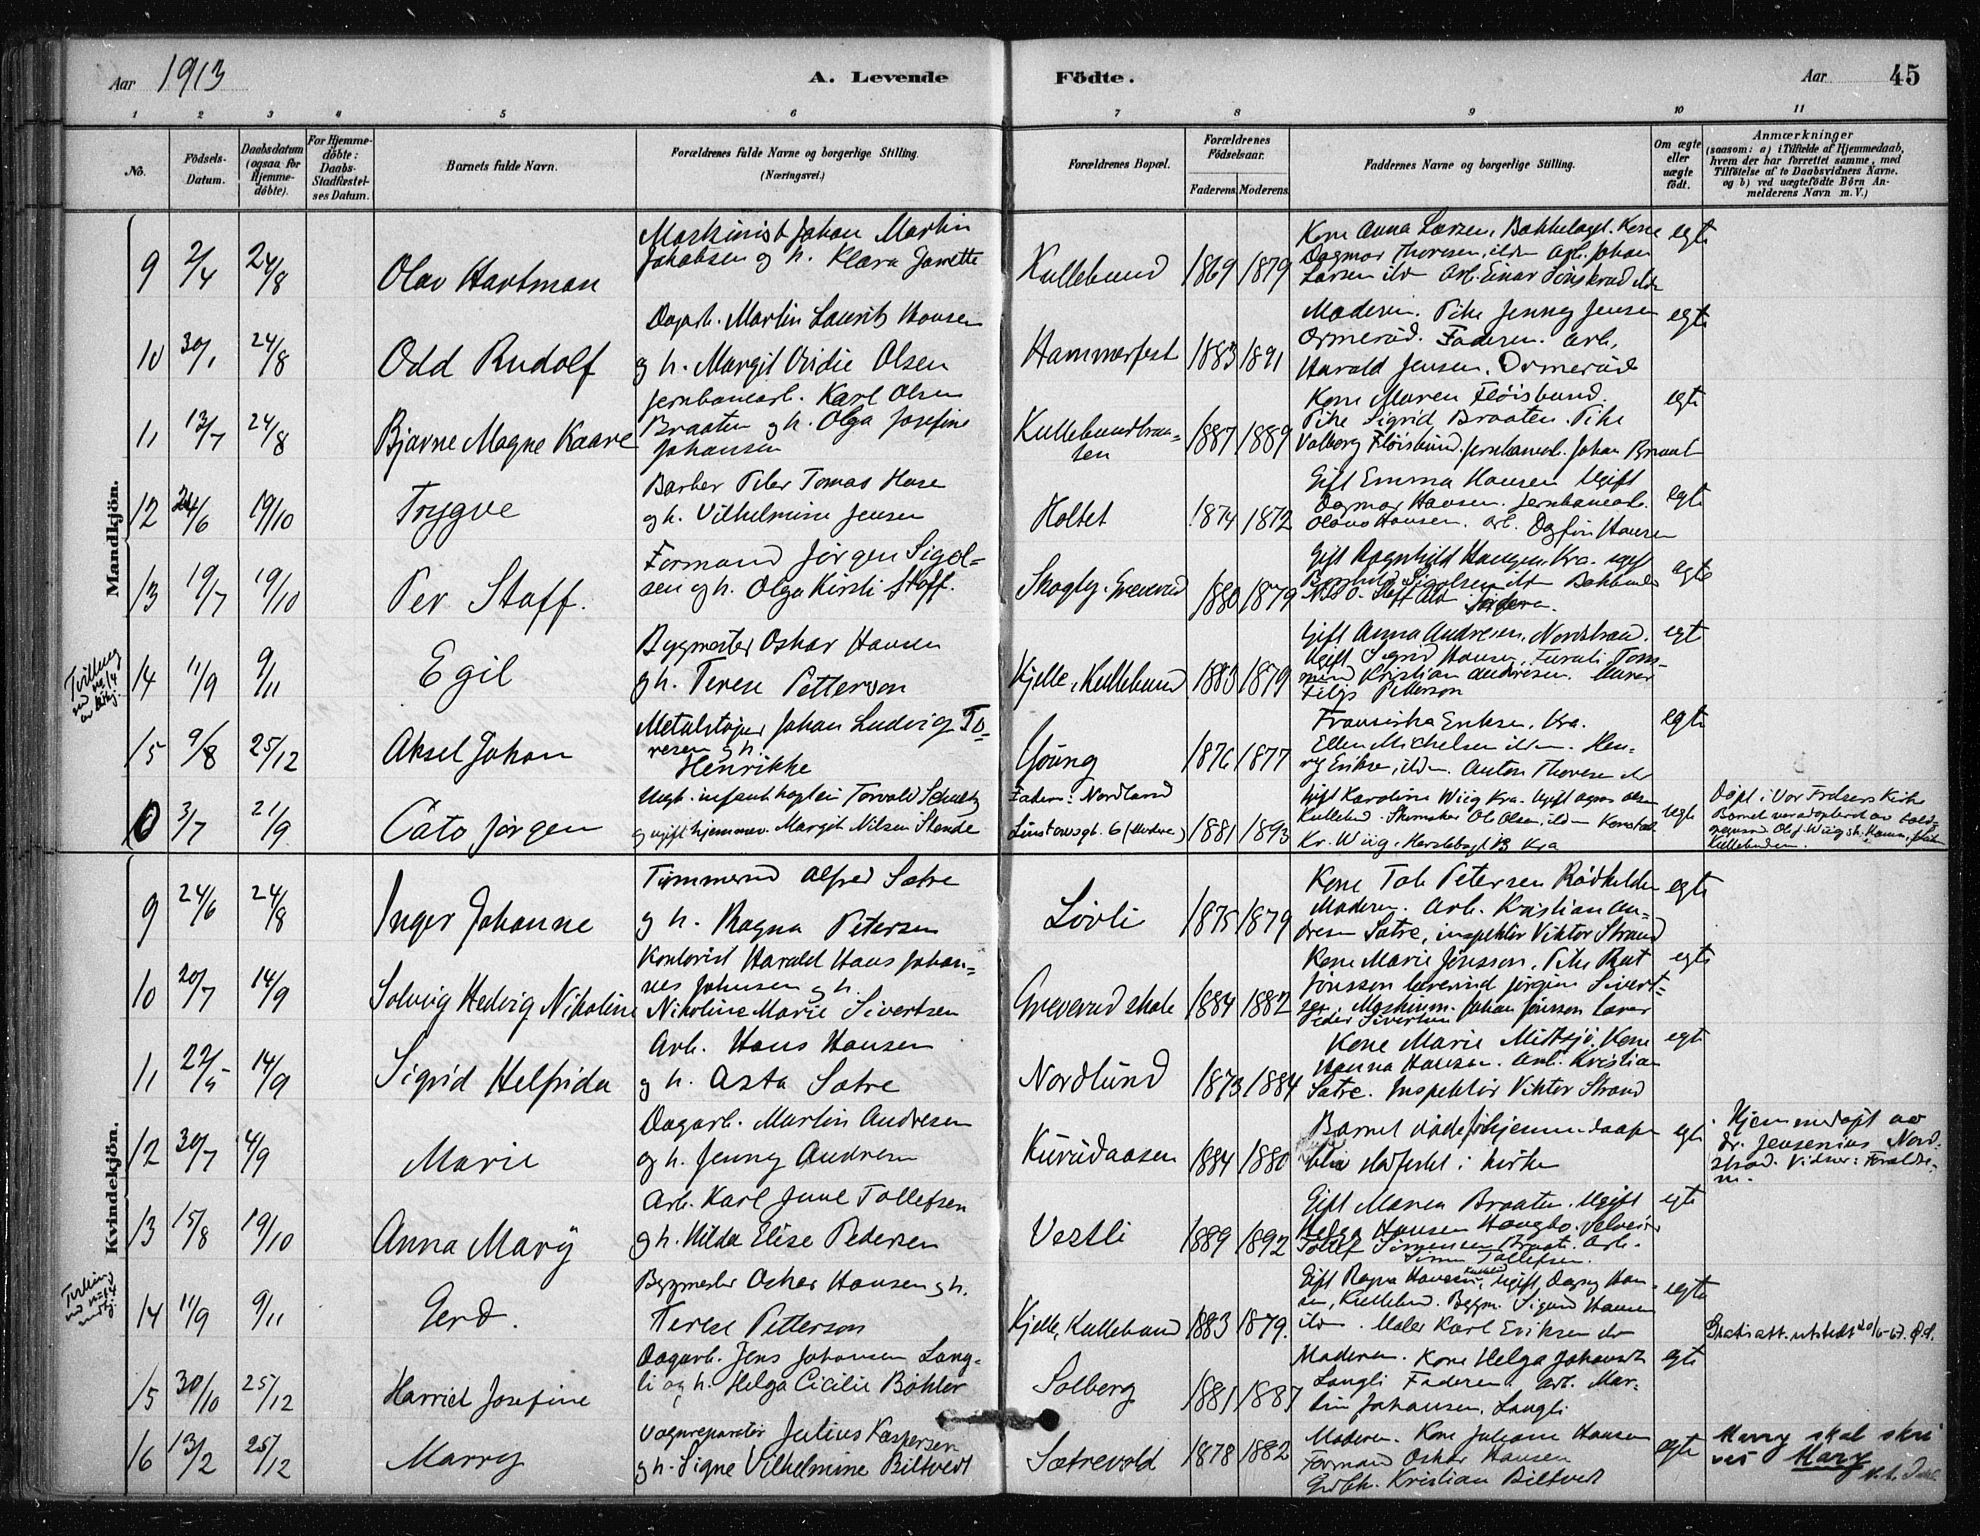 Aar 1913 A. Levende Födte. Aar 45
1 2 3 4 5 6 7 8 9 10 11
No.
Födsels-Datum.
Daabsdatum (ogsaa for Hjemme-döbte).
For Hjemme-döbte: Daabs-Stadfæstel-ses Datum.
Barnets fulde Navn.
Forældrenes fulde Navne og borgerlige Stilling. (Næringsvei.)
Forældrenes Bopæl.
Forældrenes Födselsaar.
Faderens. Moderens.
Faddernes Navne og borgerlige Stilling.
Om ægte eller uægte födt.
Anmærkninger
(saasom: a) i Tilfælde af Hjemmedaab,
hvem der har forrettet samme, med
Tilföielse af to Daabsvidners Navne.
og b) ved uægtefödte Börn An-
melderens Navn m. V.)
Mandkjön.
9 2/4 24/8 Olav Hartman
Maskinist Johan Martin
Jakobsen og h. Klara
Kullebund 1869 1879
Kone Anna Larsen, Bakkelaget. Kone
Dagmar Thoresen, ildm Arb. Johan
Larsen ildm Arb. Einar
egte
10 30/1 24/8 Odd Rudolf
Dagarb. Martin Laurits Hansen
og h. Margit Ovidie Olsen
Hammerfest 1883 1891
Moderen. Pike Jenny Jensen
Ormerud. Faderen. Arb.
Harald Jensen. Ormerud
egte
11 13/7 24/8 Bjarne Magne Kaare
Jernbanearb. Karl Olsen
Braaten og h. Olga Josefine
Johansen
Kullebundbraa-
ten
1887 1889
Kone Maren Fløisbund.
Pike Sigrid Braaten. Pike
Valborg Fløisbund. Jernbanearb. Johan Braat
egte
12 24/6 19/10 Trygve
Barber Peter Tomas Hase
og h. Vilhelmine Jensen
Holtet 1874 1872
Gift Emma Hansen Ugift
Dagmar Hansen. Jernbanearb.
Olavus Hansen. Arb. Dagfin Hansen
egte
13 19/7 19/10 Per Staff.
Formand Jørgen Sigol-
sen og h. Olga Kirsti Staff.
Skogly. Greverud 1880 1879
Gift Ragnhild Haugen, Kra. ugift
Borghild Sigolsen ildm
Nils O. Staff Faderen.
egte
Tvilling
14 11/9 9/11 Egil
Bygmester Oskar Hansen
og h. Terese Petterson
Kjelle, Kullebund 1883 1879
Gift Anna Andresen, Nordstrand.
Ugift Sigrid Hansen, Furuli Tom-
mermd Kristian Andresen. Murer
Filip Petterson
egte
15 9/8 25/12 Aksel Johan
Metalstøper Johan Ludvig To-
resen og h.
Henrikke
Ljoung 1876 1877
Fransiska Eriksen, Kra.
Ellen Michelsen ildm. Hen-
ry Eriksen, ildm. Anton Thoresen do
egte
3/7 21/9 Cato Jørgen
Ungk. infanterikaptein Torvald Schultz
og ugift hjemmev. Margit Nilsen Stende
Faderen: Nordland
Linstowsgt. 6 (Moderen)
1881 1893
Gift Karoline Wiig Kra. Ugift Agnes Olsen
Kullebund. Skomaker Ole Olsen, ildm
Kr. Wiig. Herslebsgt 13 Kra
uegte
Døpt i Vor Frelsers Kirke
Barnet var adopteret av
Olaf Wiig
Kullebunden.
Kvindekjön.
9 24/6 24/8 Inger Johanne
Tømmermd Alfred Sætre
og h. Ragna Petersen
Lövli 1875 1879
Kone Petersen
Moderen. Arb. Kristian An-
dresen Sætre, inspektør Viktor Strand
egte
10 20/7 14/9 Solveig Hedvig Nikoline
Kontorist Harald Hans Johan-
nes Johnsen og h.
Nikoline Marie Sivertsen
Greverud skole 1884 1882
Kone Marie Jönsson, Pike Rut
Jönsson Jørgen Sivert-
sen, Maskinm. Johan Jönsson Lærer
Peder Sivertsen
egte
11 22/5 14/9 Sigrid Helfrida
Arb. Hans Hansen
og h. Asta Sætre
Nordlund 1873 1884
Kone Marie Mittsjø. Kone
Hanna Hansen. Arb. Kristian
Sætre. Inspektør Viktor Strand
egte
12 30/7 4/9 Marie
Dagarb. Martin Andresen
og h. Jenny Andresen
Kurudaasen 1884 1880
Barnet døde før hjemmedaapen
blev stadfestet i kirken
egte
Hjemmedøpt av
dr. Jensenius Nord-
strand. Vidner: Forældre-
ne.
13 15/8 19/10 Anna Mary
Arb. Karl June Tollefsen
og h. Hilda Elise Pedersen
Vestli 1889 1892
Gift Maren Braaten. Ugift
Helga Hansen Haugbo. Selveier
Tollef Simensen Braaten. Arb.
Simen Tollefsen.
egte
14 11/9 9/11 Gerd.
Bygmester Oskar Hansen og h.
Terese Petterson
Kjelle, Kullebund 1883 1879.
Gift Ragna Hansen, Ugift Dagny Han-
sen, Kullebund. Bygm. Sigurd Hansen
ildm. Maler Karl Eriksen do
egte
attt. utstedt 20/6-63.
15 30/10 25/12 Harriet Josefine
Dagarb. Jens Johansen Lang-
li og h. Helga Cicilie Bøhler
Solberg 1881 1887
Moderen. Kone Helga Johansen
Langli Faderen. Arb. Mar-
tin Johansen, Langli
egte
16 13/2 25/12 Marry
Vognreparatør Julius Kaspersen
og h. Signe Vilhelmine Biltvedt
Sætrevold 1878 1882
Moderen. Kone Juliane Hansen
Formand Oskar Hansen
Grdbr. Kristian Biltvedt
egte
Marry skal skri
ves Mary